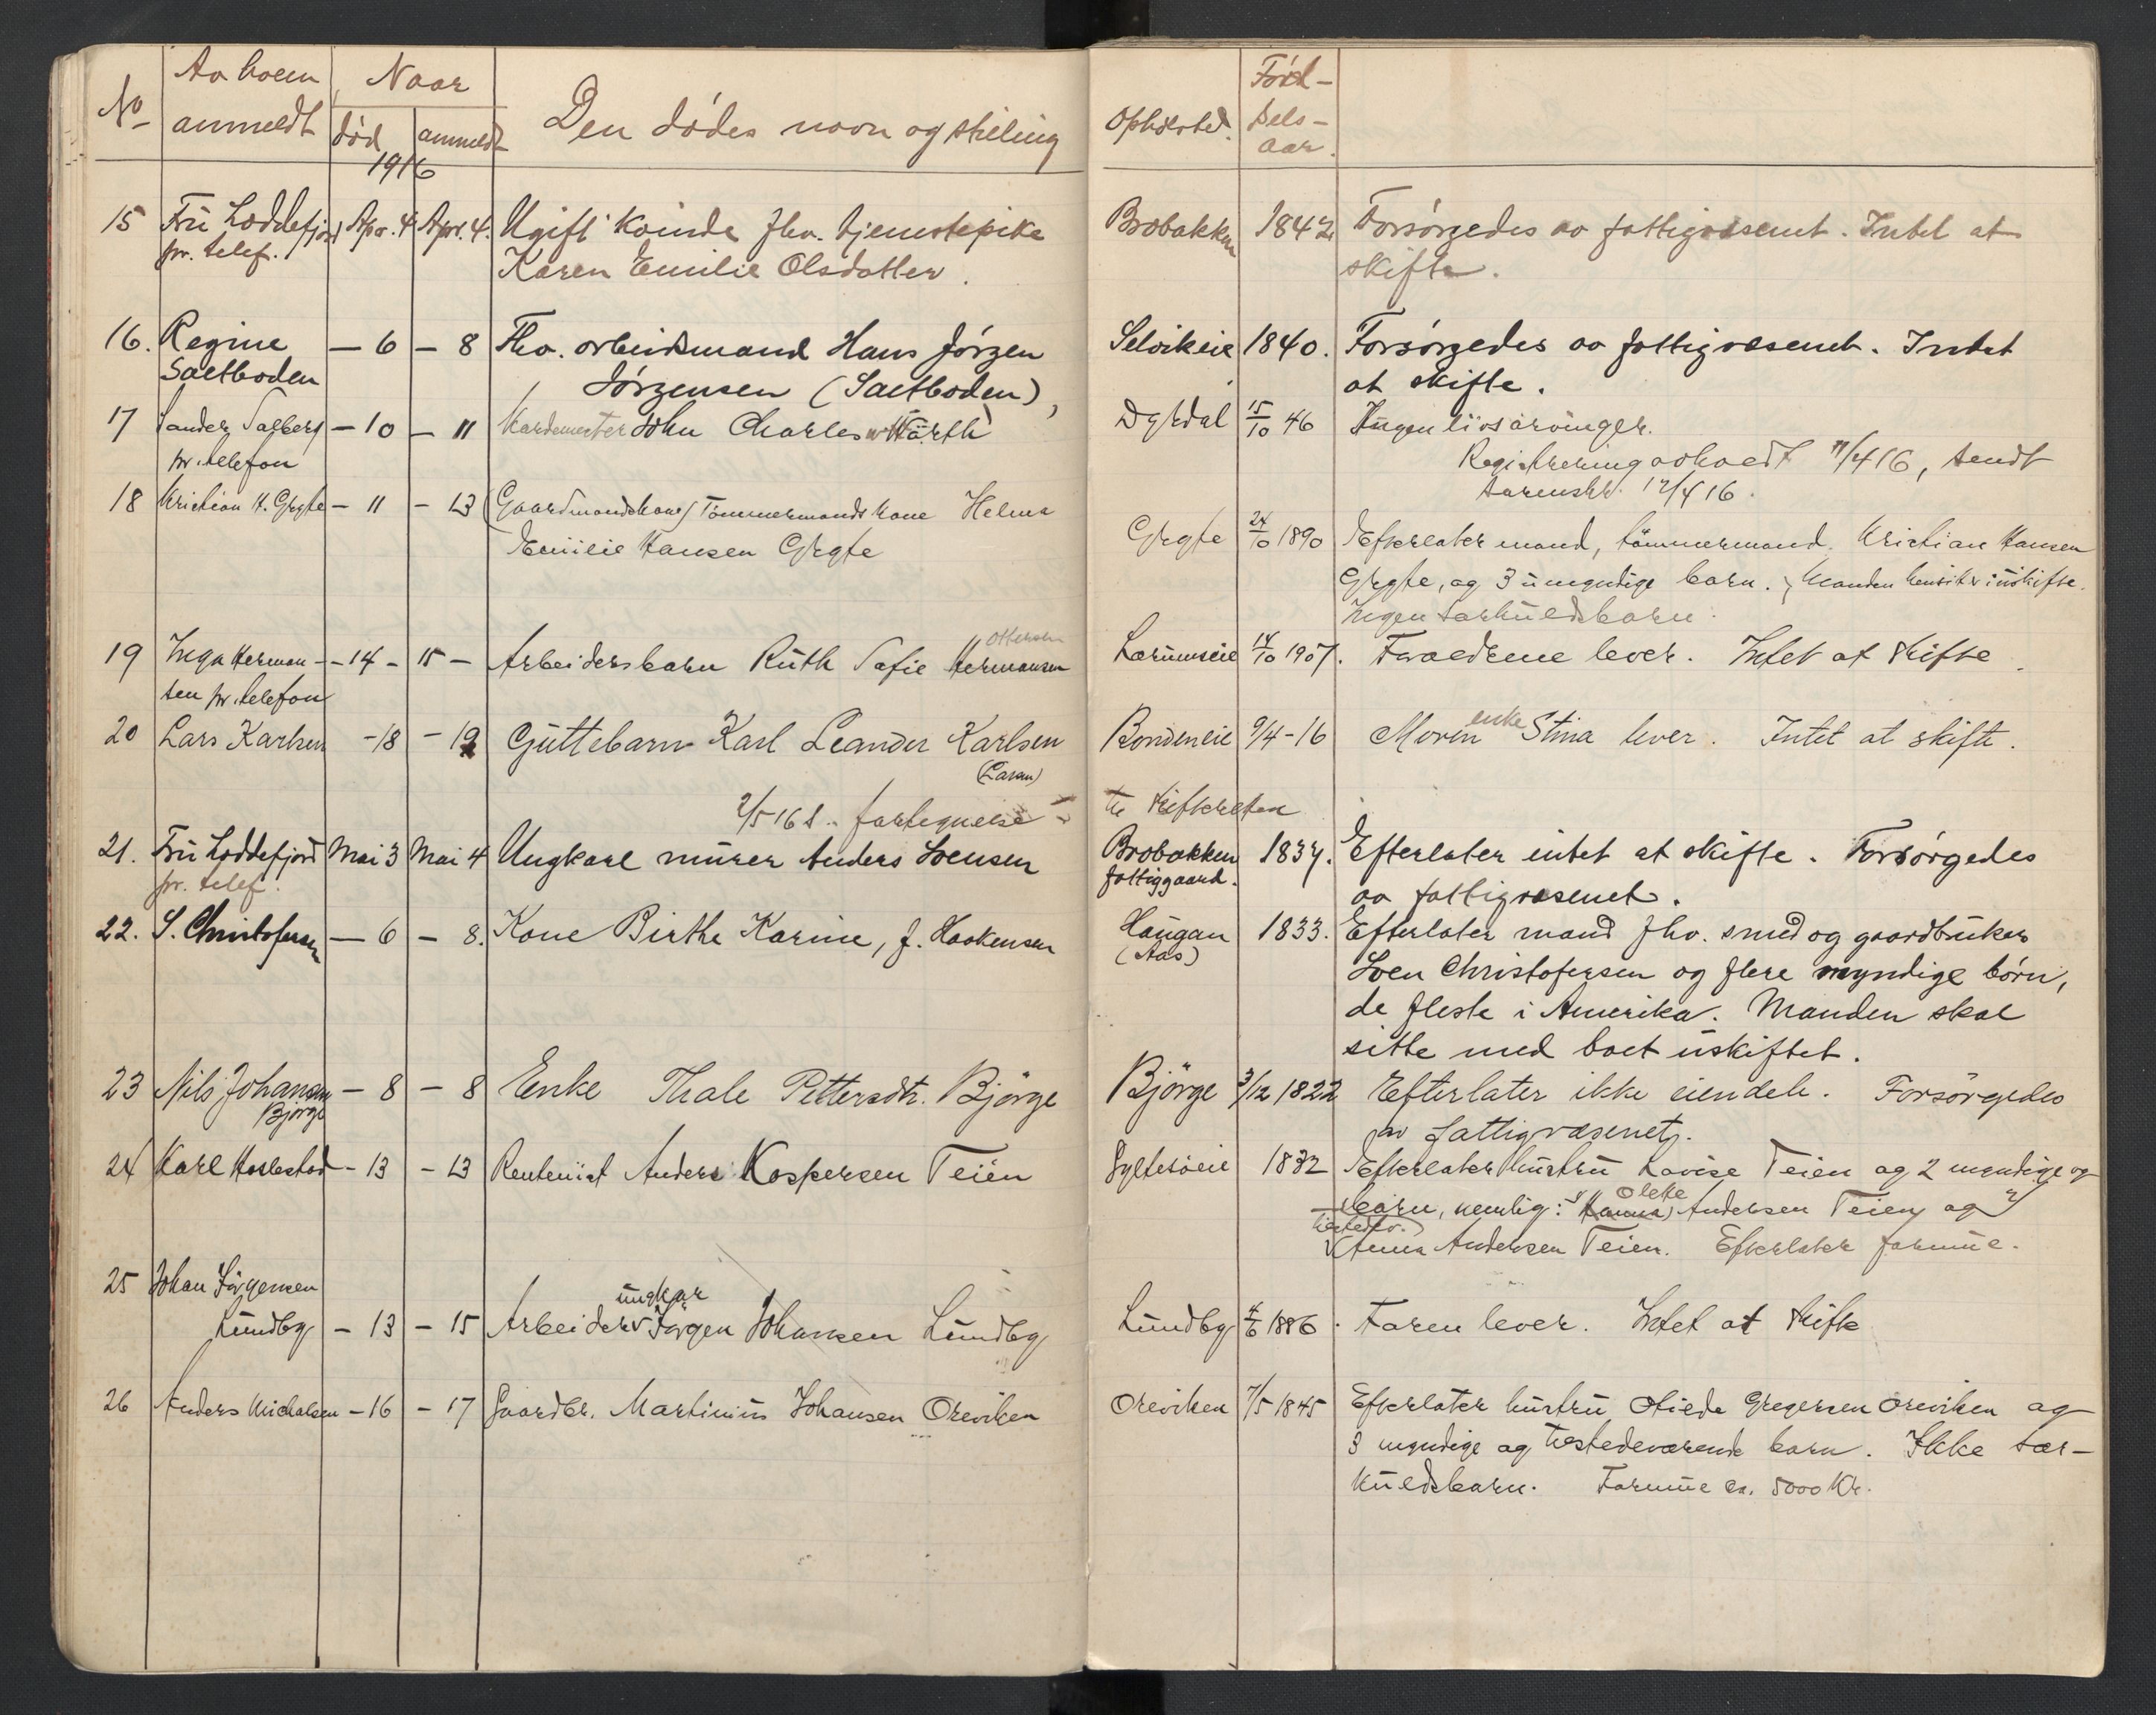 No Av hvem anmeldt Naar død anmeldt Den dødes navn og stilling Opholdsted Fødselsaar
1916
15 Fru Loddefjord Apr. 4 Apr. 4. Ugift kvinde fhv. tjenestepike Brobakken 1842 Forsørgedes av fattigvæsenet. Intet at
pr. telef. Karen Emilie Olsdatter. skifte.
16. Regine — 6 — 8 Fhv. arbeidsmand Hans Jørgen Selvikeie 1840. Forsørgedes av fattigvæsenet. Intet
Saltboden Jørgensen (Saltboden), at skifte.
17 Sander Solberg — 10 — 11 John Charles Wärth Dyrdal 15/10 46 Ingen livsarvinger.
pr. telefon Registrering avholdt 11/4 16, sendt
sorenskr. 12/4 16.
18 Kristian H. Grytte — 11 — 13 (Gaardmandskone) Tømmermandskone Helma Grytte 24/10 1890 Efterlater mand, tømmermand Kristian Hansen
Emilie Hansen Grytte Grytte, og 3 umyndige barn. Manden hensitter i uskifte.
Ingen særkuldsbarn.
19 Inga Herman- - 14 - 15 - Arbeidersbarn Ruth Sofie Hermansen Ottersen Lørumseie 14/10 1907. Forældrene lever. Intet at skifte.
sen pr. telefon
20 Lars Karlsen - 18 - 19 Guttebarn Karl Leander Karlsen Bondeneie 9/4-16 Moren enke Stina lever. Intet at skifte.
(Larsen)
2/5 16 s. fortegnelse til skifteretten
21. Fru Loddefjord Mai 3 Mai 4 Ungkarl murer Anders Svensen Brobakken 1837. Efterlater intet at skifte. Forsørgedes
pr. telef. fattiggaard. av fattigvæsenet.
22. S. Christofersen — 6 — 8. Kone Birthe Karine, f. Haakensen Haugan 1833. Efterlater mand fhv. smed og gaardbruker
(Aas) Sven Christofersen og flere myndige børn,
de fleste i Amerika. Manden skal
sitte med boet uskiftet.
23 Nils Johansen — 8 — 8 Enke Thale Pettersdtr. Bjørge Bjørge 3/12 1822 Efterlater ikke eiendele. Forsørgedes
Bjørge av fattigvæsenet.
24 Karl Haslestad - 13 - 13 Rentenist Anders Kaspersen Teien Syltesøeie 1832 Efterlater hustru Lovise Teien og 2 myndige og
tilstedev. barn, nemlig: 1) Hanna Oleke Andersen Teien og 2)
Anna Andersen Teien. Efterlater formue.
25 Johan Jørgensen
Lundby — 13 — 15 Arbeider ungkar Jørgen Johansen Lundby Lundby 4/6 1886. Faren lever. Intet at skifte
26 Anders Michalsen — 16 — 17 Gaardbr. Martinius Johansen Oreviken Oreviken 7/5 1845 Efterlater hustru Gregersen Oreviken og
3 myndige og tilstedeværende barn. Ikke sær-
kuldsbarn. Formue ca. 5000 Kr.